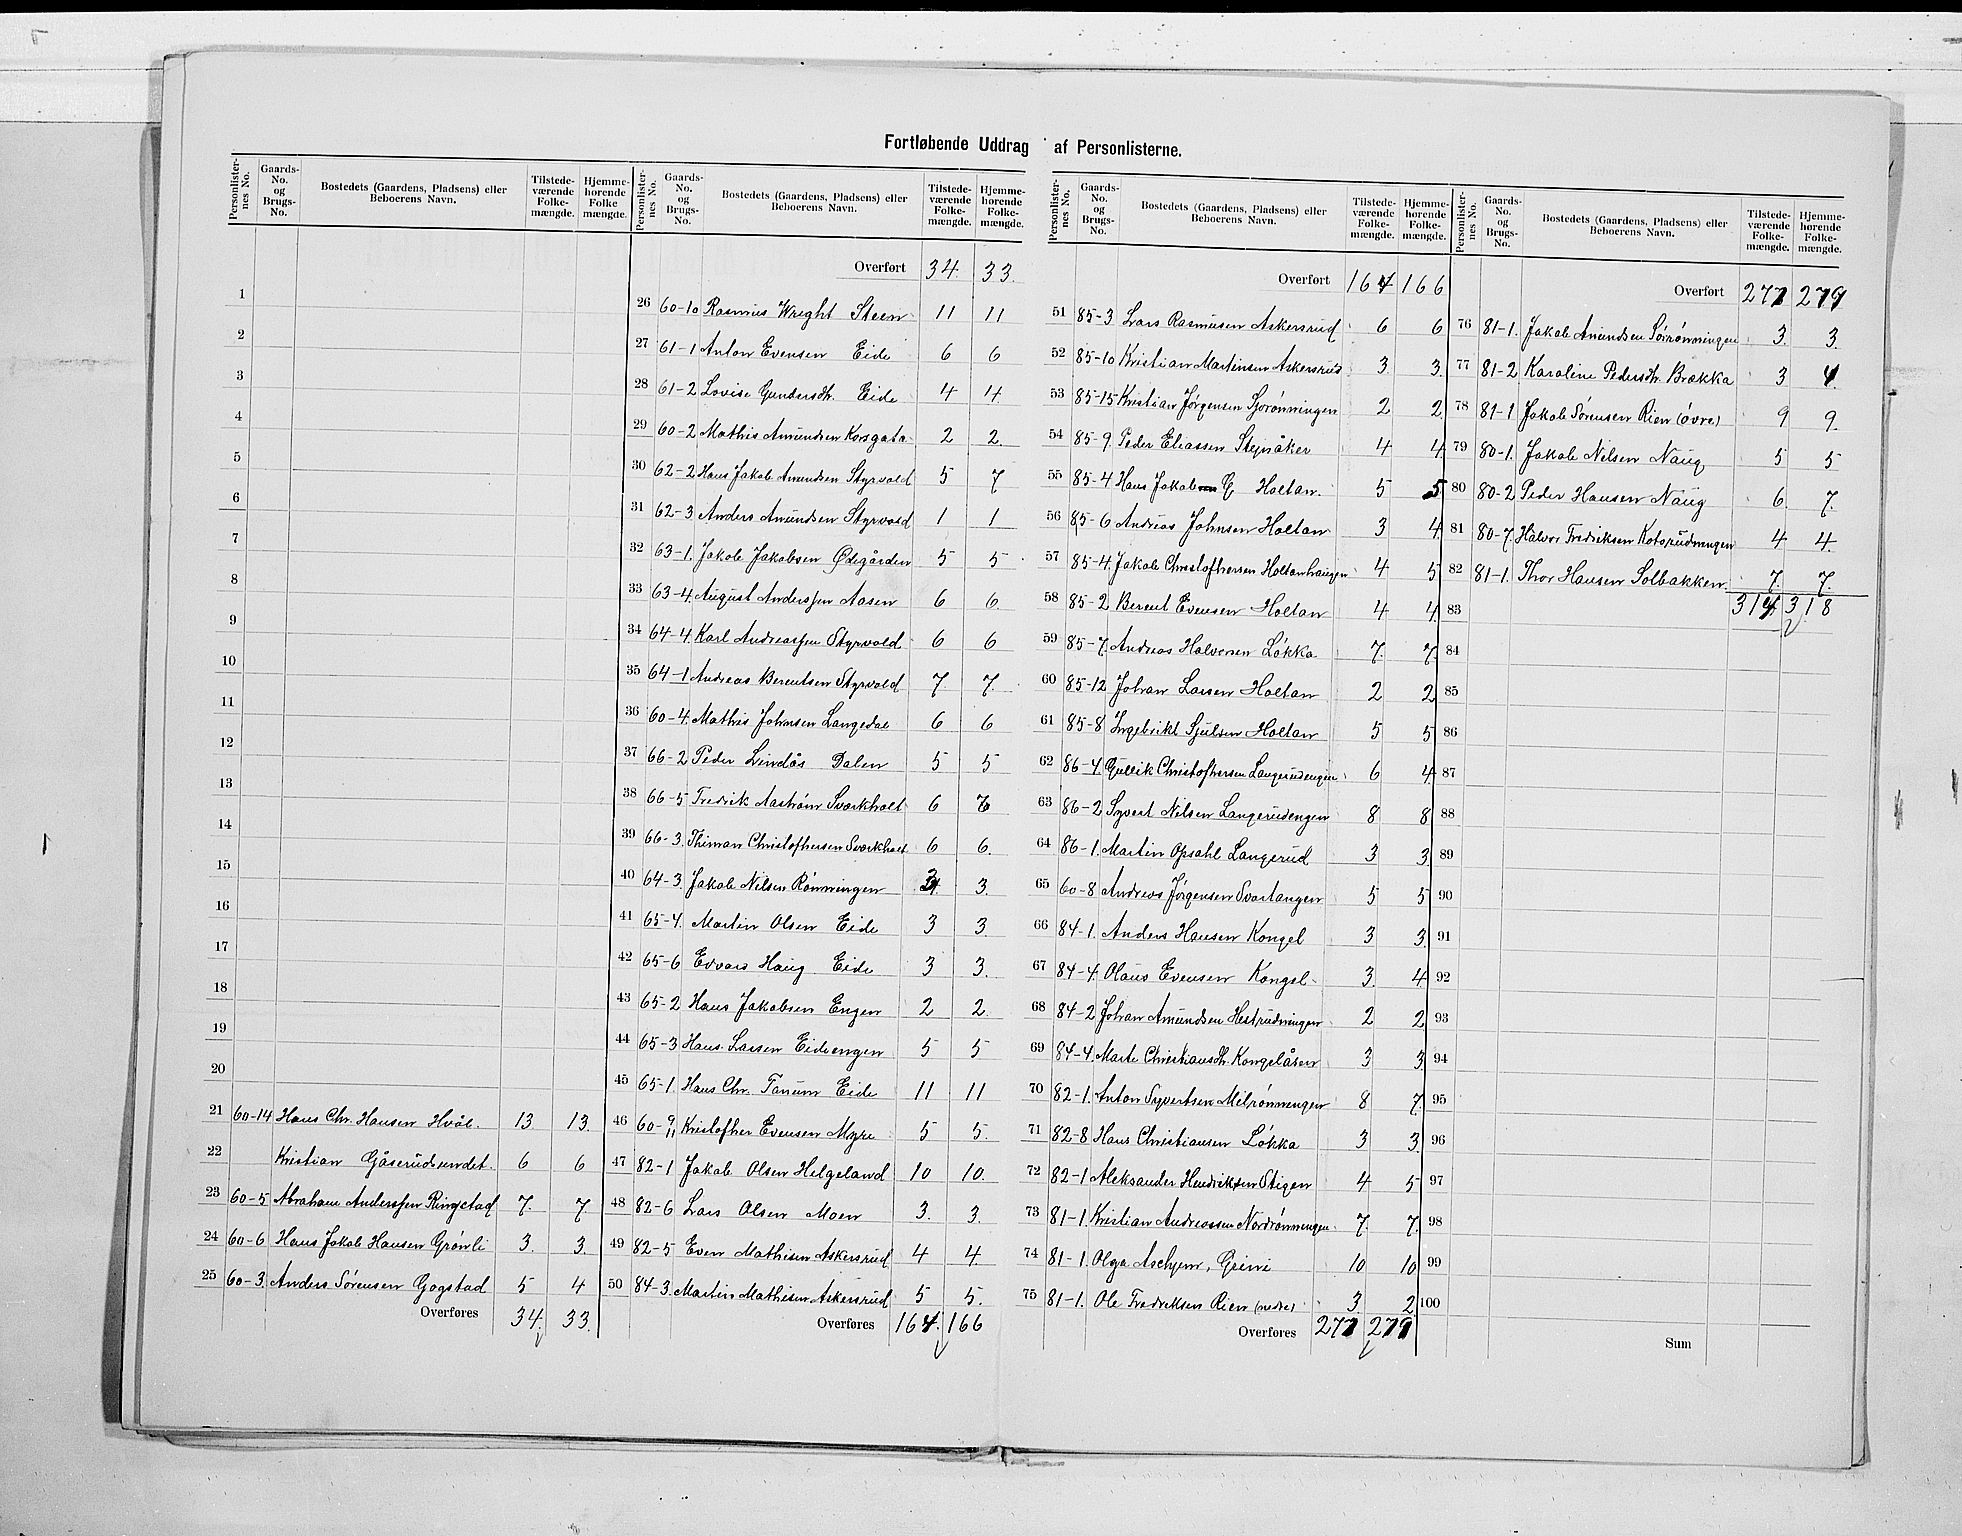 Fortløbende Uddrag af Personlisterne.
Personlisternes No. Gaards-No. og Brugs-No. Bostedets (Gaardens, Pladsens) eller Beboerens Navn. Tilstedeværende Folkemængde. Hjemmehørende Folkemængde.
1
2
3
4
5
6
7
8
9
10
11
12
13
14
15
16
17
18
19
20
21 60-14 Hans Chr. Hansen Hvål. 13. 13.
22 Kristian Gåserudsundet. 6 6
23 60-5 Abraham Anderssen Ringstad 7. 7
24 60-6 Hans Jakob Hansen Grønli 3. 3.
25 60-3. Anders Sørensen Gogstad 5 4
Overføres 34. 33.
Personlisternes No. Gaards-No. og Brugs-No. Bostedets (Gaardens, Pladsens) eller Beboerens Navn. Tilstedeværende Folkemængde. Hjemmehørende Folkemængde.
Overført 34. 33.
26 60-10 Rasmus Wright Steen 11 11
27 61-1 Anton Evensen Eide 6 6
28 61-2 Lovise Gundersdt. Eide 4 4
29 60-2 Mathis Amundsen Korsgata 2 2.
30 62-2 Hans Jakob Amundsen Styrvold 5 7
31 62-3. Anders Amundsen Styrvold 1 1
32 63-1. Jakob Jakobsen Ødegården 5 5
33 63-4. August Anderssen Aasen 6 6
34 64-4. Karl Andreassen Styrvold 6 6
35 64-1 Andreas Berentsen Styrvold 7 7.
36 60-4. Mathis Johnsen Langedal 6 6
37 66-2 Peder Lindås Dalen 5 5
38 66-5 Fredrik Aastrøm Svarkholt 6
39 66-3. Thiman Christophersen Svarkholt 6 6.
40 64-3. Jakob Nilsen Rønningen 3 3.
41 65-4. Martin Olsen Eide 3 3.
42 65-6 Edvard Haug Eide 3 3.
43 65-2 Hans Jakobsen Engen 2 2.
44 65-3 Hans Larsen Eideengen 5 5
45 65-1. Hans Chr. Tanum Eide 11 11
46 60-9 11 Kristofher Evensen Myre 5 5.
47 82-1 Jakob Olsen Helgeland 10 10.
48 82-6 Lars Olsen Moen 3. 3.
49 82-5 Even Mathisen Askersrud 4 4.
50 84-3. Martin Mathisen Askersrud 5 5.
Overføres 164. 166
Personlisternes No. Gaards-No. og Brugs-No. Bostedets (Gaardens, Pladsens) eller Beboerens Navn. Tilstedeværende Folkemængde. Hjemmehørende Folkemængde.
Overført 164 166
51 85-3 Lars Rasmusen Askersrud 6 6
52 85-10 Kristian Martinsen Askersrud 3 3.
53 85-15 Kristian Jørgensen Sjorønningen 2 2
54 85-9. Peder Eliassen Stejnåker 4 4
55 85-4 Hans Jakob E Holtan. 5 5
56 85-6 Andreas Johnsen Holtan 3 4
57 85-4. Jakob Christophersen Holtanhaugen 4 5
58 85-2 Berent Evensen Holtan 4 4.
59 85-7. Andreas Halvorsen Løkka 7. 7.
60 85-12 Johan Larsen Holtan 2 2
61 85-8 Ingebrikt Sjulsen Holtan 5 5
62 86-4. Gullik Christophersen Langerudengen 6 4
63 86-2 Syvert Nilsen Langerudengen 8 8
64 86-1. Martin Opsahl Langerud 3 3
65 60-8 Andreas Jørgensen Svartangen 5 5
66 84-1. Anders Hansen Kongel 3 3.
67 84-4. Olaus Evensen Kongel 3. 4
68 84-2 Johan Amundsen Hestrudningen 2 2
69 84-4. Marte Christiansdt. Kongelåsen 3 3.
70 82-1. Anton Syvertsen Melrønningen 8 7.
71 82-8 Hans Christiansen Løkka 3 3.
72 82-1 Aleksander Hendriksen Stigen 4 5
73 81-1. Kristian Andreassen Nordrønningen 7 7.
74 81-1. Olga Aschjem, Grini 10 10
75 81-1. Ole Fredriksen Rien (nedre) 3. 2.
Overføres 277 279
Personlisternes No. Gaards-No. og Brugs-No. Bostedets (Gaardens, Pladsens) eller Beboerens Navn. Tilstedeværende Folkemængde. Hjemmehørende Folkemængde.
Overført 277 279
76 81-1. Jakob Amundsen Sørrønningen 3 3.
77 81-2 Karoline Pedersdt. Brækka 3 4.
78 81-1 Jakob Sørensen Rien (øvre) 9 9.
79 80-1. Jakob Nilsen Naug 5 5
80 80-2 Peder Hansen Naug 6. 7.
81 80-7. Halvor Fredriksen Kotorudningen 4 4.
82 81-1. Thor Hansen Solbakken 7. 7.
83 314 318
84
85
86
87
88
89
90
91
92
93
94
95
96
97
98
99
100
Sum